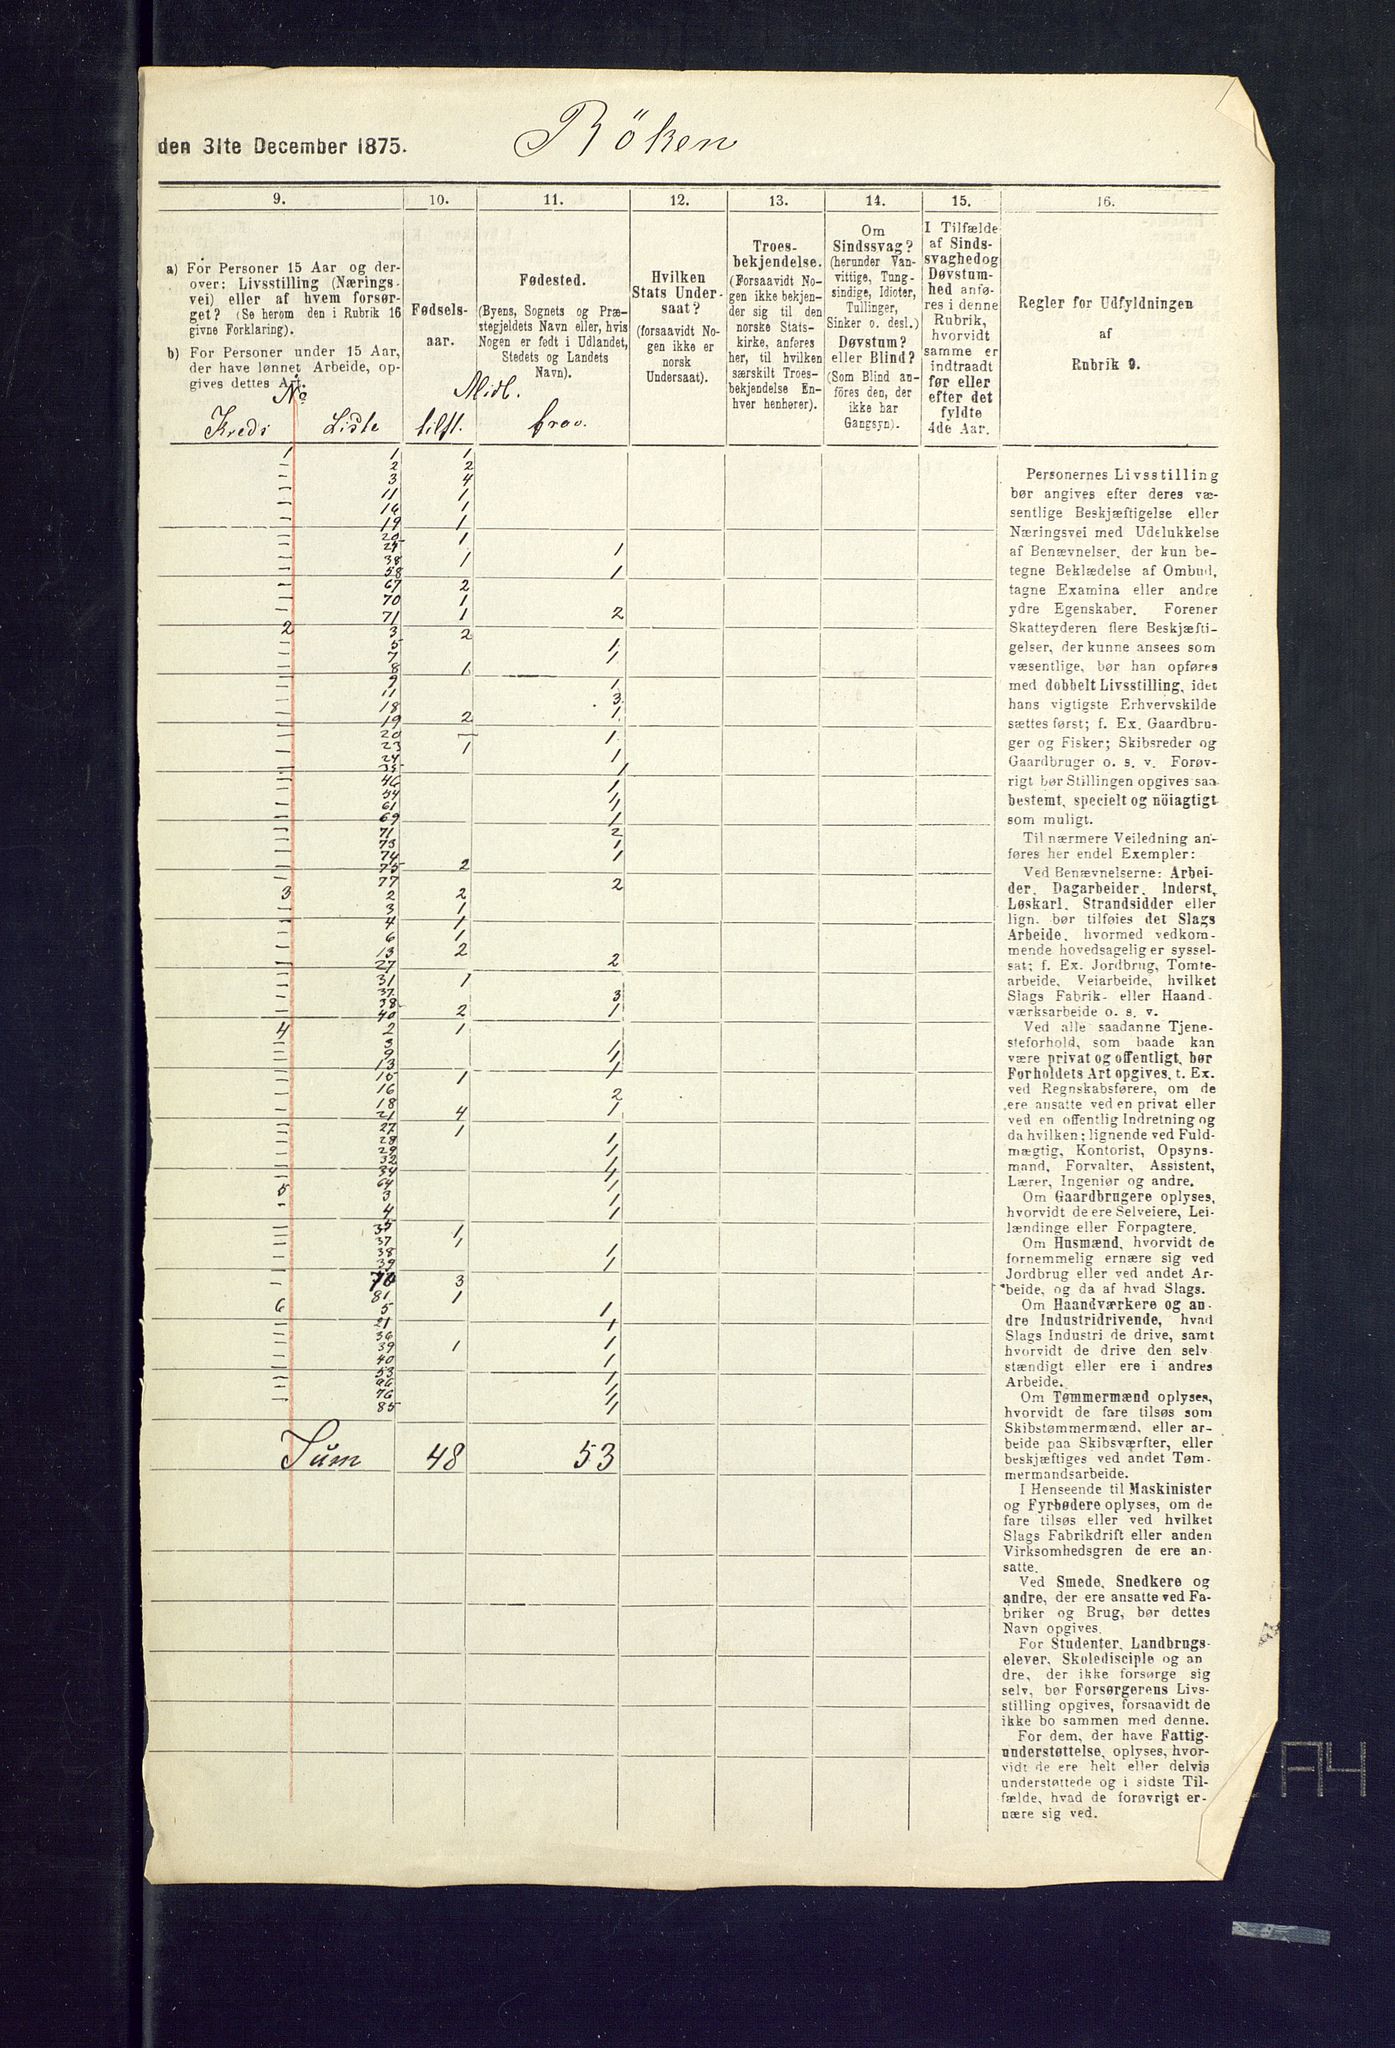 den 31te December 1875.
Röken
9.
10.
11.
12.
13.
14.
15.
16.
a) For Personer 15 Aar og der-
over: Livsstilling (Nærings-
vei) eller af hvem forsør-
get? (Se herom den i Rubrik 16
givne Forklaring).
b) For Personer under 15 Aar,
der have lønnet Arbeide, op-
gives dettes Art.
Fødsels-
aar.
Fødested.
(Byens, Sognets og Præ-
stegjeldets Navn eller, hvis
Nogen er født i Udlandet,
Stedets og Landets
Navn).
Hvilken
Stats Under-
saat?
(forsaavidt No-
gen ikke er
norsk
Undersaat).
Troes-
bekjendelse.
(Forsaavidt No-
gen ikke bekjen-
der sig til den
norske Stats-
kirke, anføres
her, til hvilken
særskilt Troes-
bekjendelse En-
hver henhører).
Om
Sindssvag?
(herunder Van-
vittige, Tung-
sindige, Idioter,
Tullinger,
Sinker o. desl.)
Døvstum?
eller Blind?
(Som Blind an-
föres den, der
ikke har
Gangsyn).
I Tilfælde
af Sinds-
svaghedog
Døvstum-
hed anfø-
res i denne
Rubrik,
hvorvidt
samme er
indtraadt
før eller
efter det
fyldte
4de Aar.
Regler for Udfyldningen
af
Rubrik 9.
No
Midl.
Kreds Liste tilst. frav.
1 1 1
2 2
3 4
11 1
16 1
19 1
20 1
25 1
38 1
58 1
67 2
70 1
71 1 2
2 3 2
5 1
7 1
8 1
9 1
11 3
18 1
19 2
20 1
23 1
24 1
35 1
46 1
54 1
61 1
69 1
71 2
73 1
74 1
75 2
77 2
3 2 2
3 1
4 1
6 1
13 2
27 2
31 1
37 3
38 1
40 2
4 2 1
3 1
9 1
13 1
15 1
16 2
18 1
21 4
27 1
28 1
29 1
32 1
34 1
64 1
5 3 1
4 1
35 1
37 1
38 1
39 1
70 3
81 1
6 5 1
21 1
36 1
39 1
40 1
53 1
76 1
85 1
Sum 48 53
Personernes Livsstilling
bør angives efter deres væ-
sentlige Beskjæftigelse eller
Næringsvei med Udelukkelse
af Benævnelser, der kun be-
tegne Beklædelse af Ombud,
tagne Examina eller andre
ydre Egenskaber. Forener
Skatteyderen flere Beskjæfti-
gelser, der kunne ansees som
væsentlige, bør han opføres
med dobbelt Livsstilling, idet
hans vigtigste Erhvervskilde
sættes først; f. Ex. Gaardbru-
ger og Fisker; Skibsreder og
Gaardbruger o. s. v. Forøv-
rigt bør Stillingen opgives saa
bestemt, specielt og nöiagtigt
som muligt.
Til nærmere Veiledning an-
føres her endel Exempler:
Ved Benævnelserne: Arbei-
der, Dagarbeider, Inderst,
Løskarl, Strandsidder eller
lign. bør tilføies det Slags
Arbeide, hvormed vedkom-
mende hovedsagelig er syssel-
sat; f. Ex. Jordbrug, Tomte-
arbeide, Veiarbeide, hvilket
Slags Fabrik- eller Haand-
værksarbeide o. s. v.
Ved alle saadanne Tjene-
steforhold, som baade kan
være privat og offentligt, bør
Forholdets Art opgives, t. Ex.
ved Regnskabsførere, om de
ere ansatte ved en privat eller
ved en offentlig Indretning og
da hvilken; lignende ved Fuld-
mægtig, Kontorist, Opsyns-
mand, Forvalter, Assistent,
Lærer, Ingeniør og andre.
Om Gaardbrugere oplyses,
hvorvidt de ere Selveiere, Lei-
lændinge eller Forpagtere.
Om Husmænd, hvorvidt de
fornemmelig ernære sig ved
Jordbrug eller ved andet Ar-
beide, og da af hvad Slags.
Om Haandværkere og an-
dre Industridrivende, hvad
Slags Industri de drive, samt
hvorvidt de drive den selv-
stændigt eller ere i andres
Arbeide.
Om Tømmermænd oplyses,
hvorvidt de fare tilsøs som
Skibstømmermænd, eller ar-
beide paa Skibsværfter, eller
beskjæftiges ved andet Tøm-
mermandsarbeide.
I Henseende til Maskinister
og Fyrbødere oplyses, om de
fare tilsøs eller ved hvilket
Slags Fabrikdrift eller anden
Virksomhedsgren de ere an-
satte.
Ved Smede, Snedkere og
andre, der ere ansatte ved Fa-
briker og Brug, bør dettes
Navn opgives.
For Studenter, Landbrugs-
elever, Skoledisciple og an-
dre, der ikke forsørge sig
selv, bør Forsørgerens Livs-
stilling opgives, forsaavidt de
ikke bo sammen med denne.
For dem, der have Fattig-
understøttelse, oplyses, hvor-
vidt de ere helt eller delvis
understøttede og i sidste Til-
fælde, hvad de forøvrigt er-
nære sig ved.
A4